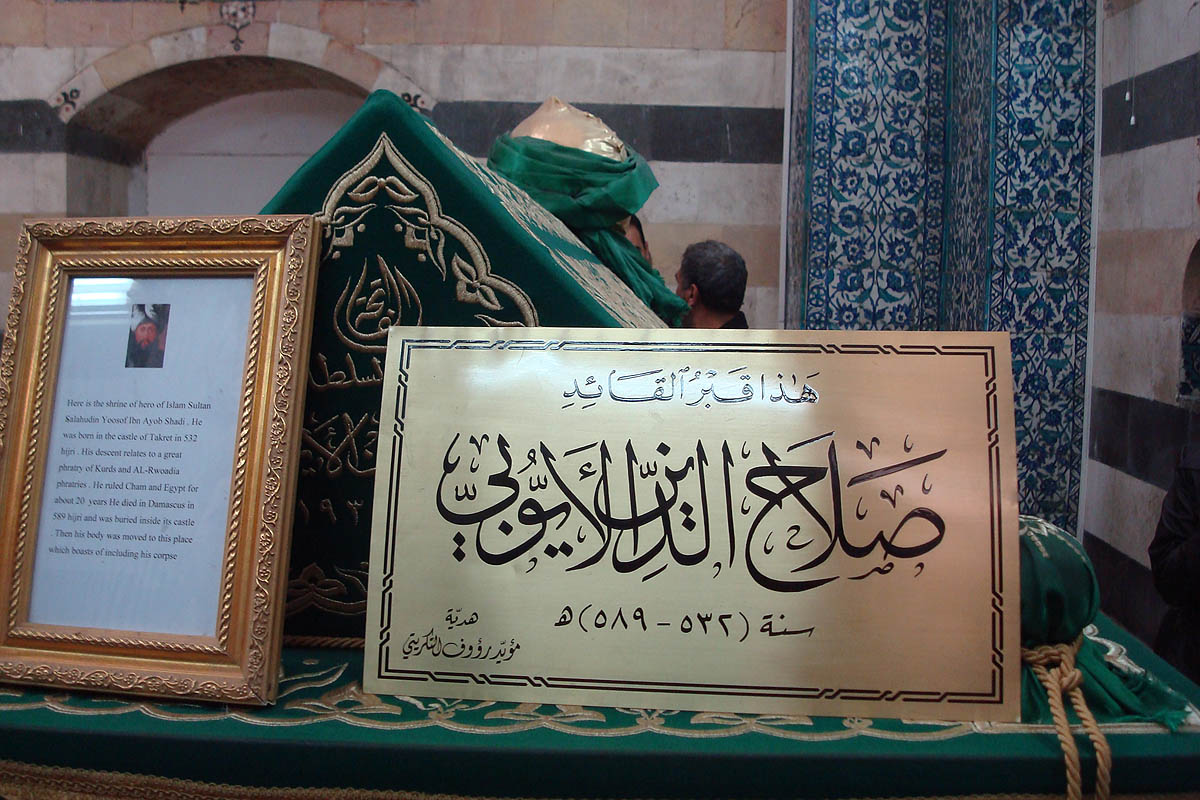 Here is the shrine of hero of Islam Sultan
Salahudin Yoosof Ibn Ayob Shadi . He
was born in the castle of Takret in 532
hijri . His descent relates to a great
phratry of Kurds and AL-Rwoadia
phratries . He ruled Cham and Egypt for
about 20 years He died in Damascus in
589 hijri and was buried inside its castle
. Then his body was moved to this place
which boasts of including his corpse
هَٰذَا قَبْرُ ٱلقَائِدِ
صَلَاح الدِّين الأَيُّوبيّ
سنة (٥٣٢ - ٥٨٩) ﻫ
هديّة
مؤيّد رؤوف التكريتي